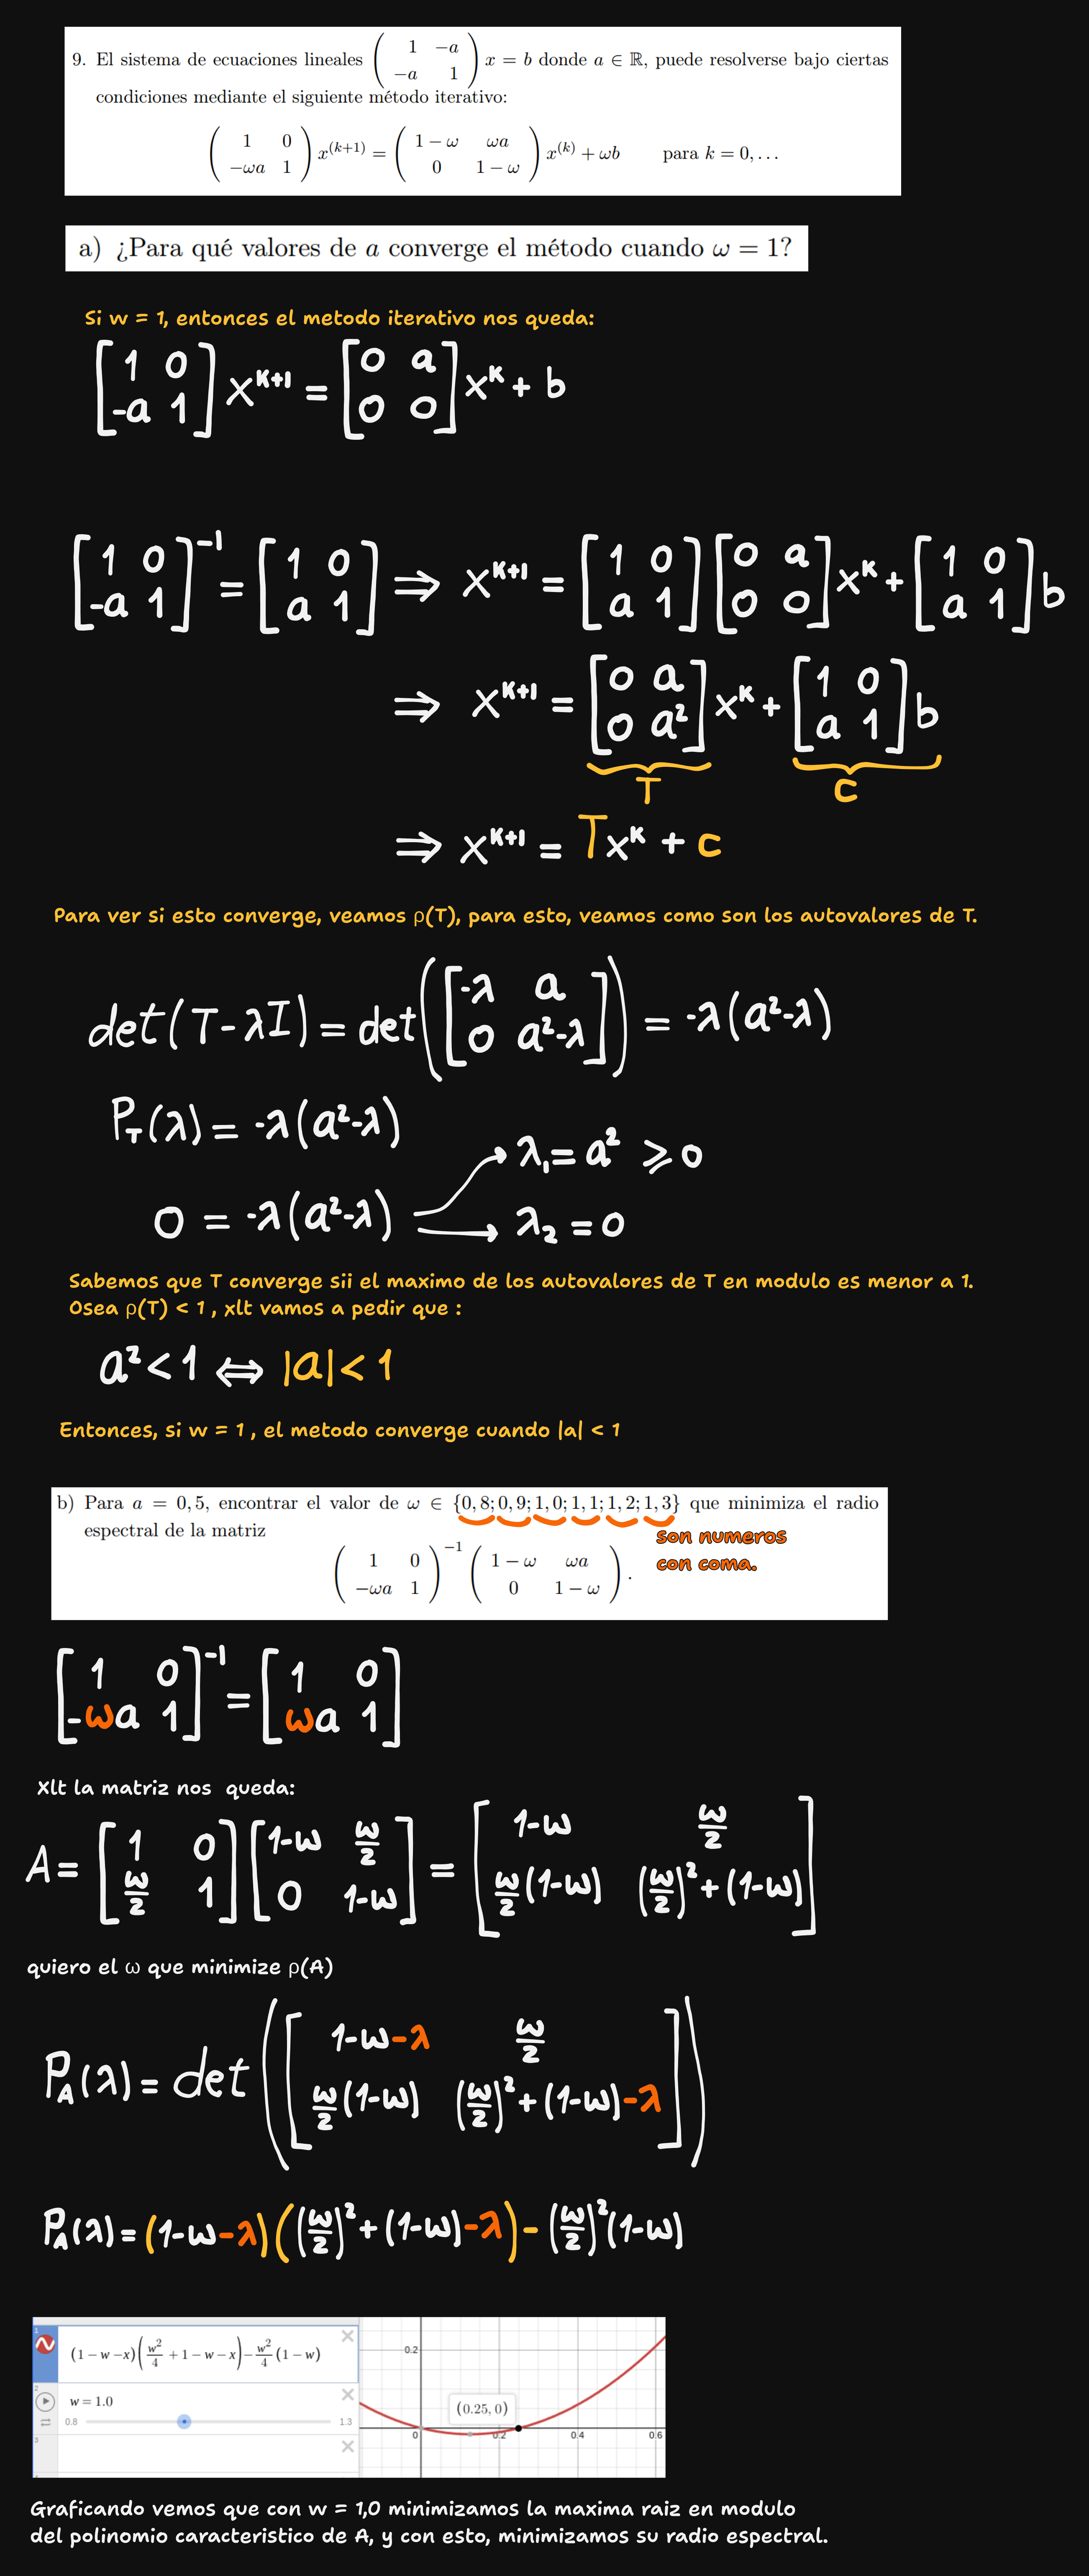 9. El sistema de ecuaciones lineales ( 1 −a ; −a 1 ) x = b donde a ∈ ℝ, puede resolverse bajo ciertas
condiciones mediante el siguiente método iterativo:
( 1 0 ; −ωa 1 ) x^(k+1) = ( 1 − ω ωa ; 0 1 − ω ) x^(k) + ωb para k = 0, . . .
a) ¿Para qué valores de a converge el método cuando ω = 1?
Si w = 1, entonces el metodo iterativo nos queda:
[1 0 ; -a 1] x^k+1 = [0 a ; 0 0] x^k + b
[1 0 ; -a 1]^-1 = [1 0 ; a 1] ⇒ x^k+1 = [1 0 ; a 1] [0 a ; 0 0] x^k + [1 0 ; a 1] b
⇒ x^k+1 = [0 a ; 0 a²] x^k + [1 0 ; a 1] b
T C
⇒ x^k+1 = Tx^k + c
Para ver si esto converge, veamos ρ(T), para esto, veamos como son los autovalores de T.
det(T-λI) = det([-λ a ; 0 a²-λ]) = -λ(a²-λ)
P_T(λ) = -λ(a²-λ)
λ₁ = a² ⩾ 0
0 = -λ(a²-λ)
λ₂ = 0
Sabemos que T converge sii el maximo de los autovalores de T en modulo es menor a 1.
Osea ρ(T) < 1 , xlt vamos a pedir que :
a² < 1 ⇔ |a| < 1
Entonces, si w = 1 , el metodo converge cuando |a| < 1
b) Para a = 0,5, encontrar el valor de ω ∈ {0,8; 0,9; 1,0; 1,1; 1,2; 1,3} que minimiza el radio
espectral de la matriz
son numeros
con coma.
( 1 0 ; −ωa 1 )^−1 ( 1 − ω ωa ; 0 1 − ω ).
[1 0 ; -ωa 1]^-1 = [1 0 ; ωa 1]
Xlt la matriz nos queda:
A = [1 0 ; ω/2 1] [1-ω ω/2 ; 0 1-ω] = [1-ω ω/2 ; ω/2(1-ω) (ω/2)²+(1-ω)]
quiero el ω que minimize ρ(A)
P_A(λ) = det([1-ω-λ ω/2 ; ω/2(1-ω) (ω/2)²+(1-ω)-λ])
P_A(λ) = (1-ω-λ)((ω/2)²+(1-ω)-λ) - (ω/2)²(1-ω)
1
(1 − w − x)(w²/4 + 1 − w − x) − w²/4 (1 − w)
2
w = 1.0
0.8 1.3
3
0.2
(0.25, 0)
0 0.2 0.4 0.6
Graficando vemos que con w = 1,0 minimizamos la maxima raiz en modulo
del polinomio caracteristico de A, y con esto, minimizamos su radio espectral.